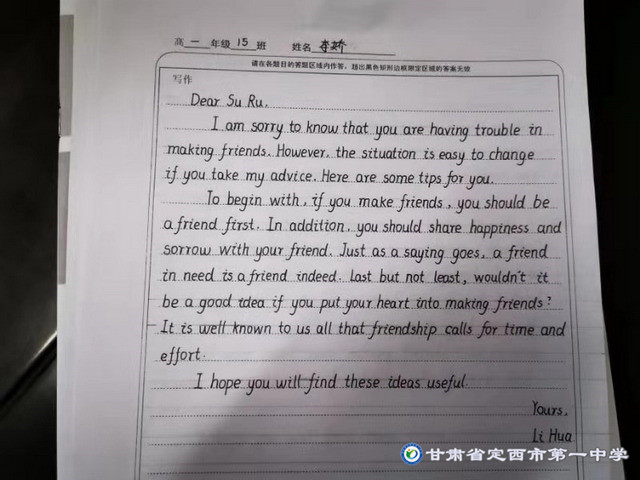 高一年级15班 姓名李娇
请在各题目的答题区域内作答，超出黑色矩形边框限定区域的答案无效
写作
Dear Su Ru,
I am sorry to know that you are having trouble in
making friends. However, the situation is easy to change
if you take my advice. Here are some tips for you.
To begin with, if you make friends, you should be
a friend first. In addition, you should share happiness and
sorrow with your friend. Just as a saying goes, a friend
in need is a friend indeed. Last but not least, wouldn't it
be a good idea if you put your heart into making friends?
It is well known to us all that friendship calls for time and
effort.
I hope you will find these ideas useful.
Yours,
Li Hua
甘肃省定西市第一中学